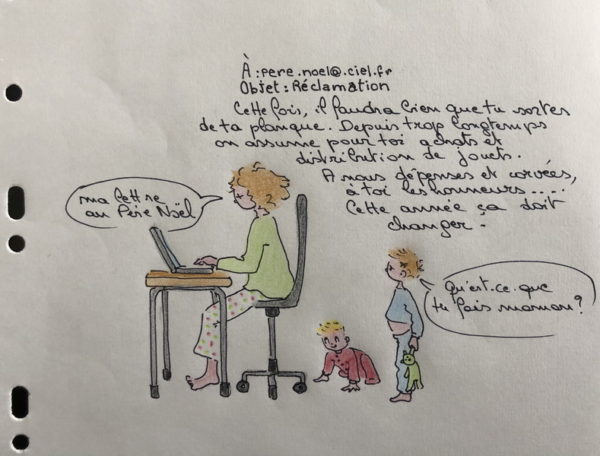 À : pere.noel@.ciel.fr
Objet : Réclamation
Cette fois, il faudra bien que tu sortes
de ta planque. Depuis trop longtemps
on assume pour toi achats et
distribution de jouets.
A nous dépenses et corvées,
à toi les honneurs.....
Cette année ça doit
changer.
ma lettre
au Père Noël
Qu'est-ce-que
tu fais maman?